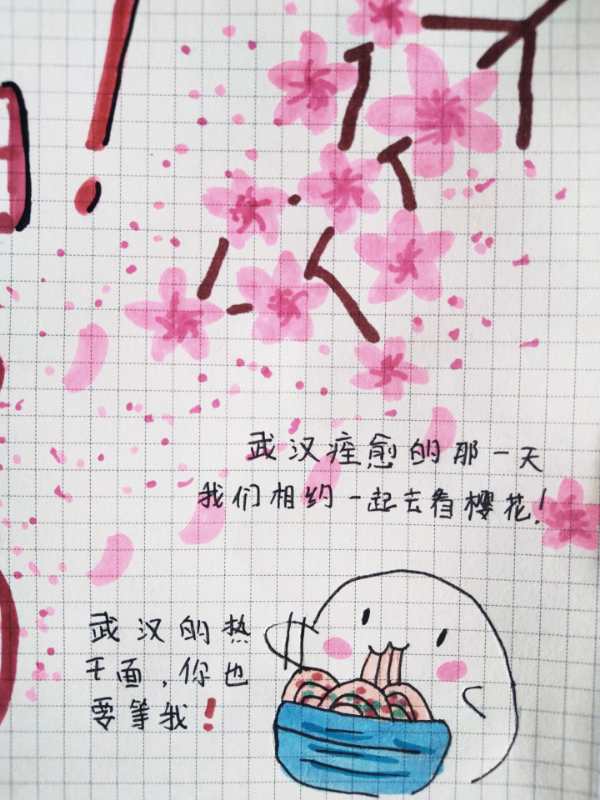 !
武汉痊愈的那一天
我们相约一起去看樱花!
武汉的热
干面,你也
要等我!